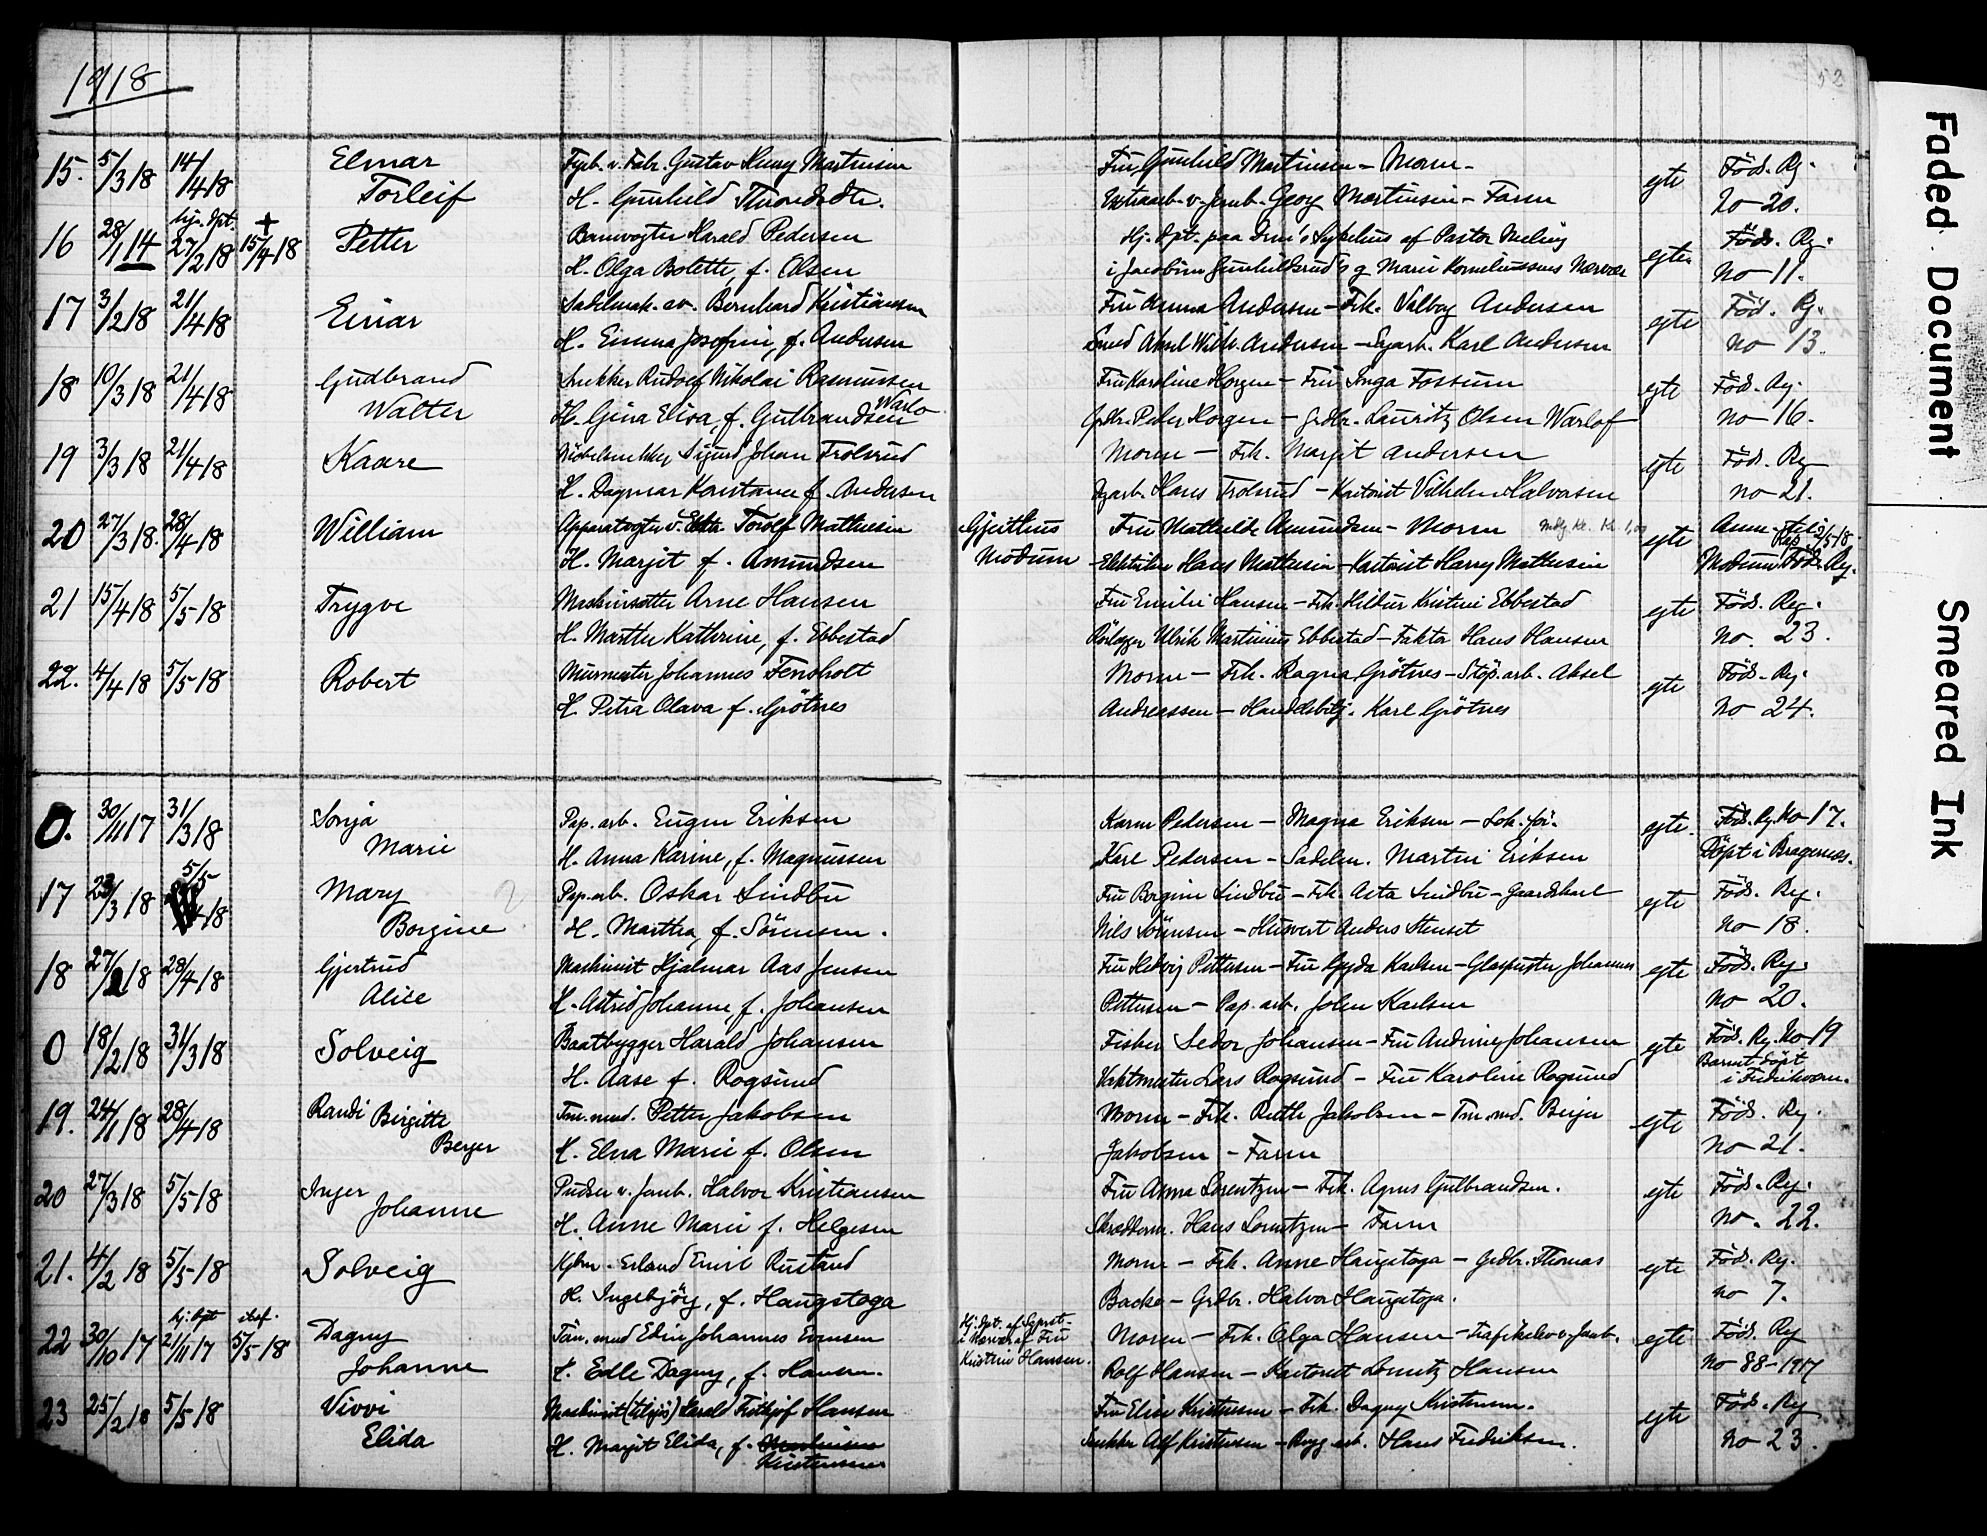 1918
52
15. 5/3 18 14/4 18 Elmar Fyrb. v. Fabr. Gustav Henry Martinsen Fru Gunhild Martinsen - Moren - egte Föds. Rg.
Torleif H. Gunhild Extraarb. v. Jernb. Georg Martinsen - Faren No 20.
hj. dpt. +
16 28/1 14 27/2 18 15/4 18 Petter Banevogter Harald Pedersen Hj. dpt. paa Drm's Sykehus af Pastor egte Föds. Rg.
H. Olga Bolette, f. Olsen i Jacobine Gunhildsrud's og Marie Korneliussens Nærvær No 11.
17 3/2 18 21/4 18 Einar Sadelmak. sv. Bernhard Kristiansen Fru Anna Andersen - Frk. Valborg Andersen egte Föd. Rg.
H. Emma Josefine, f. Andersen Smed Aksel Wilh. Andersen - Karl Andersen No 13.
18 10/3 18 21/4 18 Gudbrand Snekker Rudolf Nikolai Rasmussen Fru Karoline Horgen - Fru Inga Fossum egte Föd. Rg.
Walter H. Gina Elisa, f. Gulbrandsen Warlo Grdbr. Peder Horgen - Grdbr. Lauritz Olsen Warlof No 16.
19 3/3 18 21/4 18 Kaare Möbelsnekker Sigurd Johan Trolsrud Moren - Frk. Margit Andersen egte Föd. Rg
H. Dagmar Konstance f. Andersen Hans Trolsrud - Kontorist Vilhelm Halvorsen No 21.
20 27/3 18. 28/4 18 William Apparatvogter v. Torolf Mathisen Gjeithus Fru Mathilde Amundsen - Moren egte Anm.
H. Margit f. Amundsen Modum Elektriker Hans Mathisen - Kontorist Harry Mathisen Modum Föds. Rg.
21 15/4 18 5/5 18 Trygve Maskinsetter Arne Hansen Fru Emilie Hansen - Frk. Hildur Kristine Ebbestad egte Föds. Reg.
H. Marthe Kathrine, f. Ebbestad Rörlegger Ulrik Martinius Ebbestad - Faktor Hans Hansen No. 23.
22. 4/4 18 5/5 18 Robert Murmester Johannes Fensholt Moren - Frk. Ragna Grötnes - Stöp. arb. Aksel egte Föds. Rg.
H. Petra Olava f. Grötnes Andreassen - Handelsbetj. Karl Grötnes No 24.
0. 30/11 17 31/3 18 Sonja Pap. arb. Eugen Eriksen Karen Pedersen - Magna Eriksen - Lok. för. egte. Föd. Rg. No 17.
Marie H. Anna Karine, f. Magnussen Karl Pedersen - Sadelm. Martin Eriksen Döpt i Bragernæs.
17 23/3 18 5/5 18 Mary Pap. arb. Oskar Lindbu Fru Borgine Lindbu - Frk. Asta Lindbu - Gaardskarl egte Föds. Rg.
Borgine H. Marthea, f. Sörensen. Nils Sörensen - Husvert Anders Stenset No 18.
18 27/2 18 28/4 18 Gjertrud Maskinist Hjalmar Aas Jensen Fru Hedvig Pettersen - Fru Gyda Karlsen - Glaspuster Johannes egte Föds. Rg.
Alice H. Astrid Johanne, f. Johansen Pettersen - Pap. arb. John Karlsen No 20.
0 18/2 18 31/3 18 Solveig Baatbygger Harald Johansen Fisker Sedor Johansen - Fru Andrine Johansen egte Föds. Rg. No 19
H. Aase f. Rogsund Vaktmester Lars Rogsund - Fru Karoline Rogsund Barnet döpt
i Fredriksværn.
19. 24/1 18 28/4 18 Randi Birgitte Tm. mnd. Petter Jakobsen Moren - Frk. Ruth Jakobsen - Tm. mnd. Birger egte Föds. Rg.
Berger H. Elna Marie f. Olsen Jakobsen - Faren No 21.
20 27/3 18 5/5 18 Inger Pudser v. Jernb. Halvor Kristiansen Fru Anna Lorentzen - Frk. Agnes Gulbrandsen. egte Föds. Rg.
Johanne H. Anne Marie f. Helgesen Skredderm. Hans Lorentzen - Faren No. 22.
21. 4/2 18 5/5 18 Solveig Kjbm. Erland Emil Rustand Moren - Frk. Anne Haugstoga - Grdbr. Thomas egte Föds. Rg.
H. Ingebjörg, f. Haugstoga Backe - Grdbr. Halvor Haugstoga. No 7.
hj. dpt stadf.
22 30/10 17 2/11 17 5/5 18 Dagny Töm. mnd Edin Johannes Evensen Hj. dpt. af Moren - Frk. Olga Hansen - Trafikelev v. Jernb. egte Föds. Rg
i Nærvær af Fru
Johanne H. Edle Dagny, f. Hansen. Kristine Hansen. Rolf Hansen - Kontorist Lorentz Hansen No 88-1917
23 25/2 18 5/5 18 Vivvi Maskinist (tilsjös) Harald Fritjof Hansen Fru Elise Kristensen - Frk. Dagny Kristensen. egte Föds. Rg
Elida H. Margit Elida, f. Kristensen Snekker Alf Kristensen - Brygg. arb. Hans Fredriksen. No 23.
Faded Document
Smeared Ink